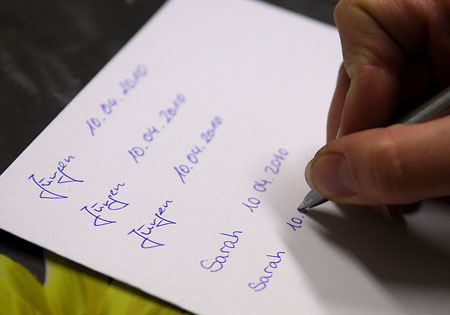 Jürgen 10.04.2010
Jürgen 10.04.2010
Jürgen 10.04.2010
Sarah 10.04.2010
Sarah 10.